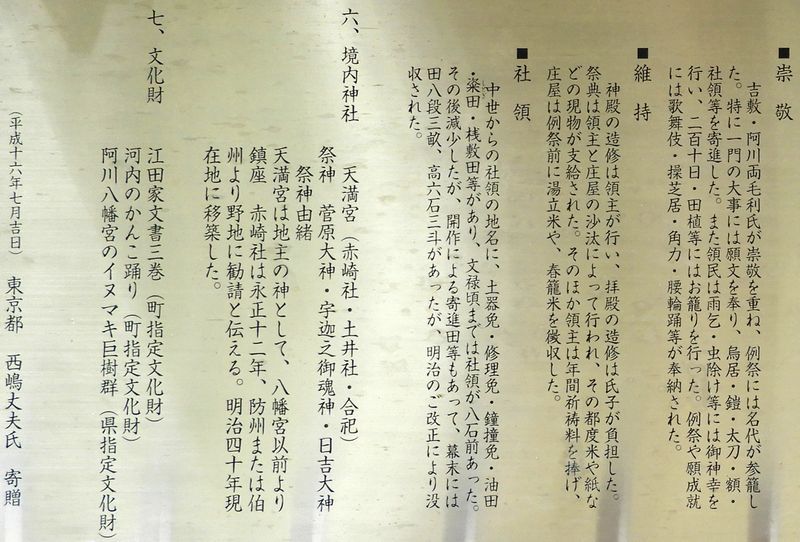 ■崇敬
吉敷・阿川両毛利氏が崇敬を重ね、例祭には名代が参籠し
た。特に一門の大事には願文を奉り、鳥居・鎧・太刀・額・
社領等を寄進した。また領民は雨乞・虫除け等には御神幸を
行い、二百十日・田植等にはお籠りを行った。例祭や願成就
には歌舞伎・操芝居・角力・腰輪踊等が奉納された。
■維持
神殿の造修は領主が行い、拝殿の造修は氏子が負担した。
祭典は領主と庄屋の沙汰によって行われ、その都度米や紙な
どの現物が支給された。そのほか領主は年間祈祷料を捧げ、
庄屋は例祭前に湯立米や、春籠米を徴収した。
■社領
中世からの社領の地名に、土器免・修理免・鐘撞免・油田
・楽田・桟敷田等があり、文禄頃までは社領が八石前あった。
その後減少したが、開作による寄進田等もあって、幕末には
田八段三畝、高六石三斗があったが、明治のご改正により没
収された。
六、境内神社 天満宮（赤崎社・土井社・合祀）
祭神 菅原大神・宇迦之御魂神・日吉大神
祭神由緒
天満宮は地主の神として、八幡宮以前より
鎮座 赤崎社は永正十二年、防州または伯
州より野地に勧請と伝える。明治四十年現
在地に移築した。
七、文化財
江田家文書三巻（町指定文化財）
河内のかんこ踊り（町指定文化財）
阿川八幡宮のイヌマキ巨樹群（県指定文化財）
（平成十六年七月吉日） 東京都 西嶋丈夫氏 寄贈